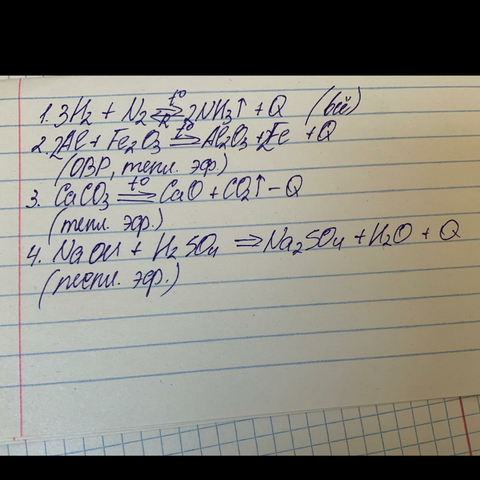 1. 3H₂ + N₂ ⇄ t° 2NH₃↑ + Q (всё)
2. 2Al + Fe₂O₃ t° ⇒ Al₂O₃ + 2Fe + Q
(ОВР, тепл. эф.)
3. CaCO₃ t° ⇒ CaO + CO₂↑ - Q
(тепл. эф.)
4. NaOH + H₂SO₄ ⇒ Na₂SO₄ + H₂O + Q
(тепл. эф.)